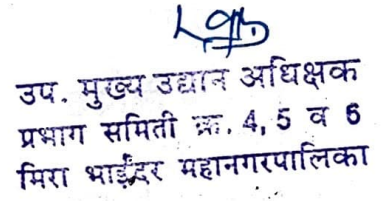 उप. मुख्य उद्यान अधिक्षक
प्रभाग समिती क्र. 4, 5 व 6
मिरा भाईंदर महानगरपालिका